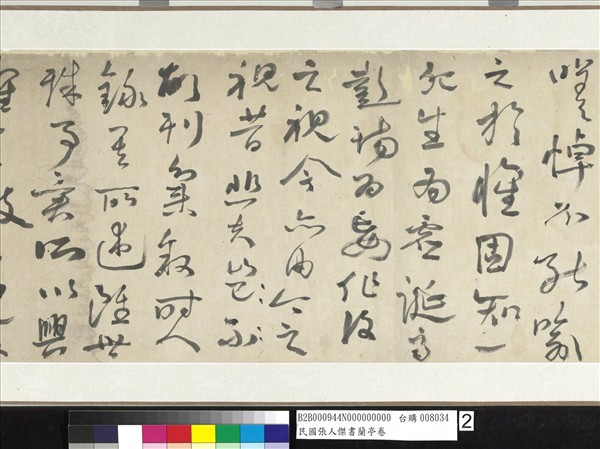 嗟悼不能喻
之於懷固知一
死生為虛誕齊
彭殤為妄作後
之視今亦由今之
視昔悲夫
故列敘時人
錄其所述雖世
殊事異所以興
B2B000944N000000000 台購 008034
民國張人傑書蘭亭卷
2